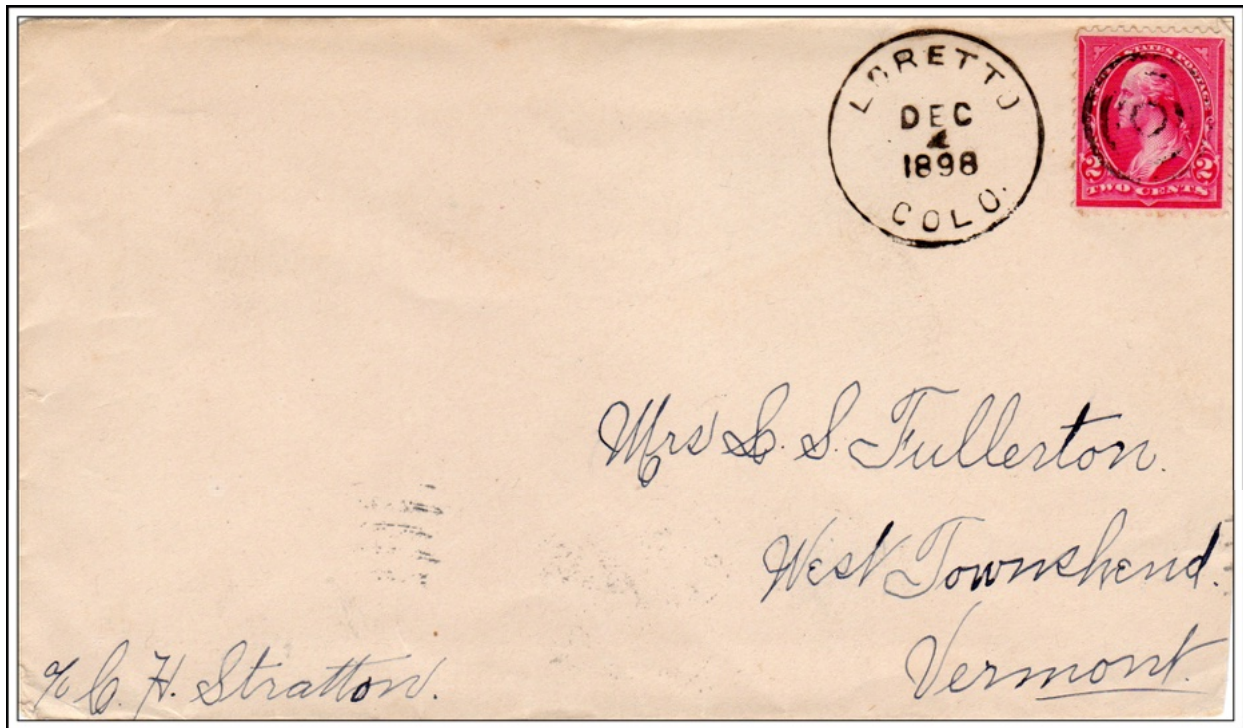 LORETTO
DEC
4
1898
COLO.
STATES POSTAGE
2 2
TWO CENTS
Mrs L. S. Fullerton.
West Townshend.
Vermont.
c/o C. H. Stratton.